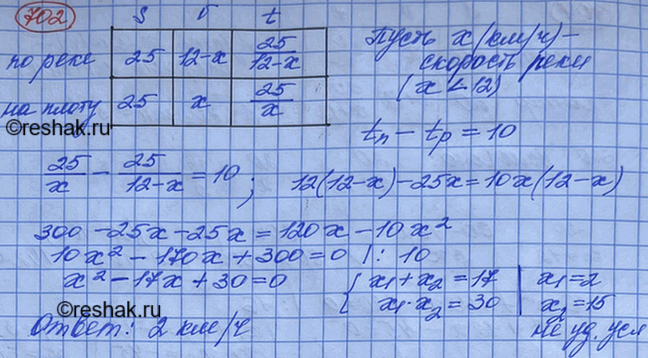 702
S v t
по реке 25 12-x 25/(12-x)
на плоту 25 x 25/x
Пусть x (км/ч) -
скорость реки
(x < 12)
©reshak.ru
tп - tр = 10
25/x - 25/(12-x) = 10; 12(12-x) - 25x = 10x(12-x)
300 - 25x - 25x = 120x - 10x²
10x² - 170x + 300 = 0 |: 10
x² - 17x + 30 = 0
{ x1 + x2 = 17 | x1 = 2
x1·x2 = 30 | x2 = 15
не уд. усл
©reshak.ru
©reshak.ru
Ответ: 2 км/ч